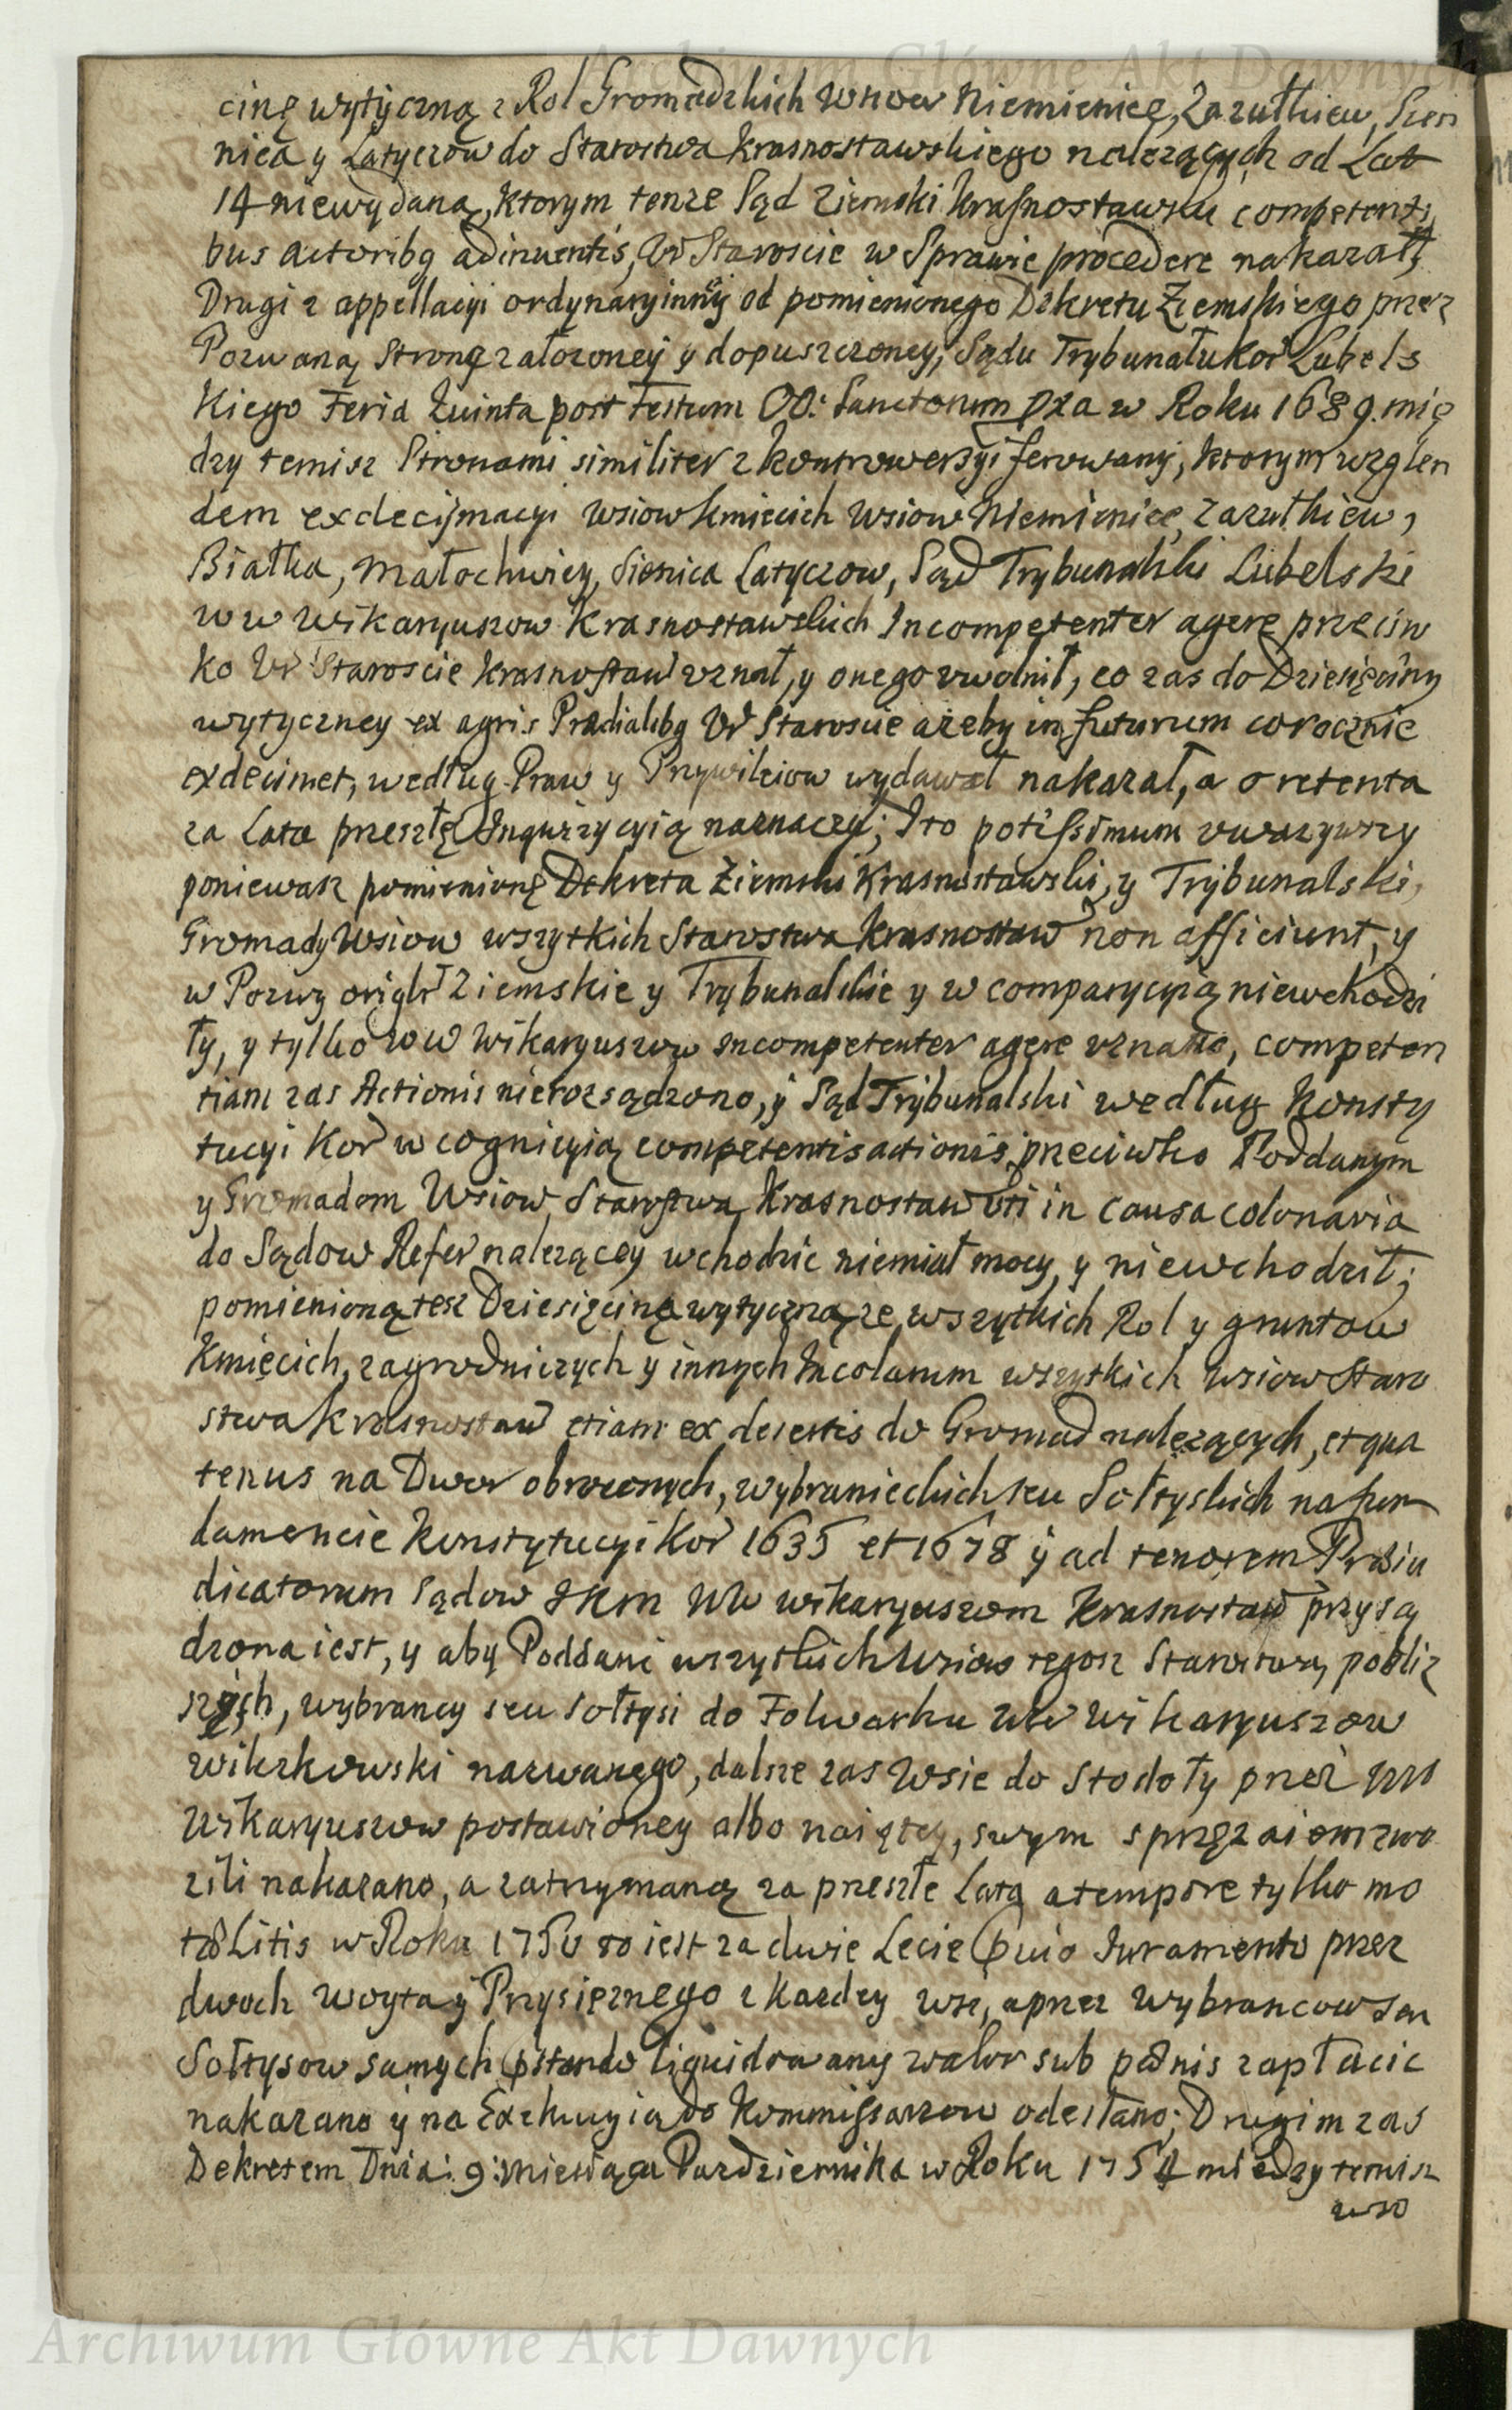 Archiwum Główne Akt Dawnych
cinę wytyczną z Rol Gromadzkich Wsiow Niemienice, Zazułkiew, Sien
nica y Latyczow do Starostwa Krasnostawskiego należących od Lat
14 niewydaną, ktorym tenze Sąd Ziemski Krasnostawski competenti
bus actoribq adinventis, Ur Staroscie w Sprawie procedere nakazał,
Drugi z appellacyi ordynaryinney od pomienionego Dekretu Ziemskiego przez
Pozwaną Stronę założoney y dopuszczoney, Sądu Trybunału Kor Lubels
kiego Feria Quinta post Festum OO: Sanctorum pza w Roku 1689. mię
dzy temisz Stronami similiter z kontrowersyi ferowany, ktorym wzglen
dem exdecijmacyi wsiow Kmiecich Wsiow Niemienice, Zazułkiew,
Białka, Małochwiey, Sienica Latyczow, Sąd Trybunalski Lubelski
ww Wikaryuszow Krasnostawskich Incompetenter agere przeciw
ko Ur Staroscie Krasnostaw uznał, y onego uwolnił, co zas do Dziesięciny
wytyczney ex agris Prædialibq Ur Staroscie ażeby in futurum corocznie
exdecimet, według Praw y Przywileiow wydawał nakazał, a o retenta
za Lata przeszłe Inqwizycyią naznaczył; Ito potissimum uważywszy
poniewasz pomienione Dekreta Ziemski Krasnostawski, y Trybunalski,
Gromady Wsiow wszytkich Starostwa Krasnostaw non afficiunt, y
w Pozwy orighr Ziemskie y Trybunalskie y w comparycyią niewchodzi
ły, y tylko ww Wikaryuszow incompetenter agere uznano, competen
tiam zas Actionis nierozsądzono, y Sąd Trybunalski według Konsty
tucyi Kor w cognicyią competentis actionis przeciwko Poddanym
y Gromadom Wsiow Starostwa Krasnostaw uti in causa colonaria
do Sądow Refer należącey wchodzic niemiał mocy, y niewchodził;
pomienioną tesz Dziesięcinę wytyczną ze wszytkich Rol y gruntow
Kmięcich, zagrodniczych y innych Incolarum wszystkich wsiow Staro
stwa Krasnostaw etiam ex desertis do Gromad należących, et qua
tenus na Dwor obroconych, wybranieckich seu Sołtyskich na fun
damencie Konstytucyi Kor 1635 et 1678 y ad tenorem Præiu
dicatorum Sądow JKM WW wikaryuszom Krasnostaw przysą
dzona iest, y aby Poddani wszytkich Wsiow tegosz Starostwa, pobliz
szych, wybrancy seu Sołtysi do Folwarku WW Wikaryuszow
wilezkowski nazwanego, dalsze zas Wsie do Stodoły przez WW
Wikaryuszow postawioney albo naiętey, swym sprzężaiem zwo
zili nakazano, a zatrzymaną za przeszłe Lata a tempore tylko mo
tæ Litis w Roku 1750 to iest za dwie Lecie Prævio Iuramento przez
dwoch woyta y Przysięznego z kazdzy wsi, a przez Wybrancow seu
Sołtysow samych præstando liquidowany walor sub pænis zapłacic
nakazano y na Exekucyią do Kommissarzow odesłano; Drugim zas
Dekretem Dnia: 9: Miesiąca Pazdziernika w Roku 1754 między temisz
Archiwum Główne Akt Dawnych